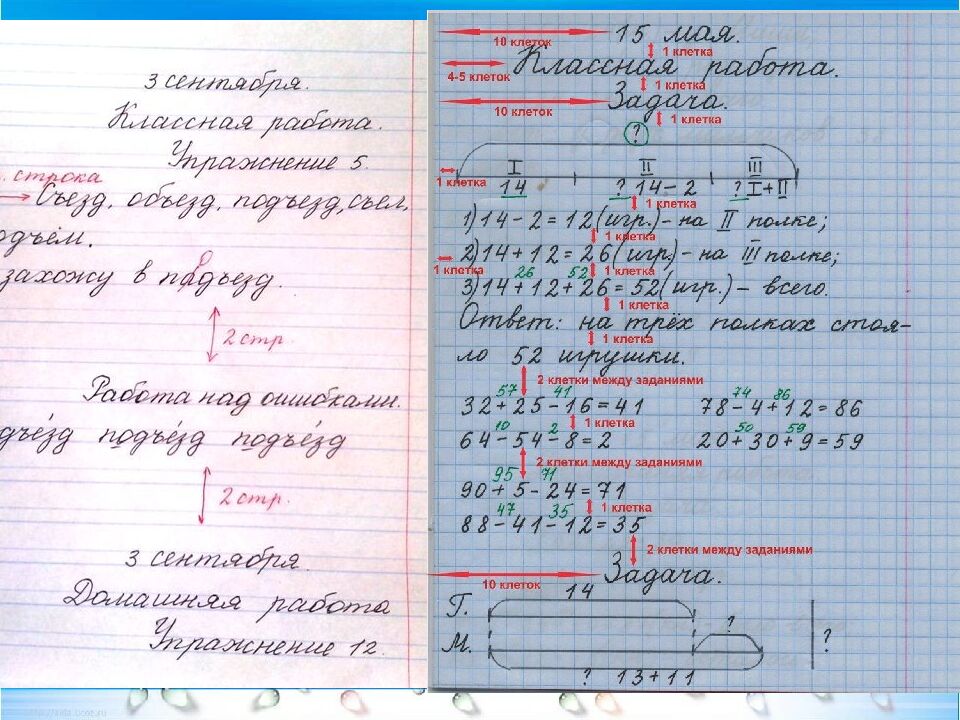 3 сентября.
Классная работа.
Упражнение 5.
строка
Съезд, объезд, подъезд, съел,
одъём.
захожу в подъезд.
о
2 стр.
Работа над ошибками.
дъезд подъезд подъезд
2 стр.
3 сентября
Домашняя работа
Упражнение 12.
10 клеток 15 мая.
1 клетка
4-5 клеток Классная работа.
1 клетка
10 клеток Задача.
1 клетка
?
I II III
1 клетка 14 ? 14-2 ? I+II
1 клетка
1) 14-2=12 (игр.) - на II полке;
1 клетка
2) 14+12=26 (игр.) - на III полке;
1 клетка 26 52 1 клетка
3) 14+12+26=52 (игр.) - всего.
1 клетка
Ответ: на трёх полках стоя-
1 клетка
ло 52 игрушки.
2 клетки между заданиями
57 41 74 86
32+25-16=41 78-4+12=86
10 2 1 клетка 50 59
64-54-8=2 20+30+9=59
2 клетки между заданиями
95 71
90+5-24=71
47 35 1 клетка
88-41-12=35
2 клетки между заданиями
10 клеток Задача.
14
Г.
?
М. ?
? 13+11